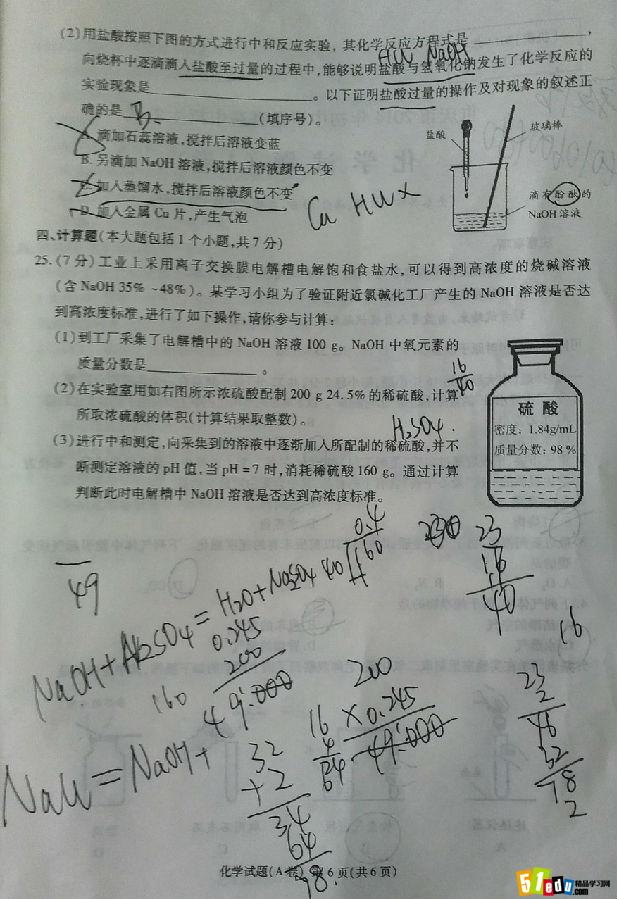 (2)用盐酸按照下图的方式进行中和反应实验,其化学反应方程式是
HCl NaOH
向烧杯中逐滴滴入盐酸至过量的过程中,能够说明盐酸与氢氧化钠发生了化学反应的
实验现象是____________。以下证明盐酸过量的操作及对现象的叙述正
确的是 B ____________(填序号)。
A. 滴加石蕊溶液,搅拌后溶液变蓝
B. 另滴加 NaOH 溶液,搅拌后溶液颜色不变
C. 加入蒸馏水,搅拌后溶液颜色不变
D. 加入金属 Cu 片,产生气泡
Cu HCl ×
盐酸
玻璃棒
滴有酚酞的
NaOH 溶液
四、计算题(本大题包括1个小题,共7分)
25.(7分)工业上采用离子交换膜电解槽电解饱和食盐水,可以得到高浓度的烧碱溶液
(含 NaOH 35% ~48%)。某学习小组为了验证附近氯碱化工厂产生的 NaOH 溶液是否达
到高浓度标准,进行了如下操作,请你参与计算:
(1)到工厂采集了电解槽中的 NaOH 溶液 100 g。NaOH 中氧元素的
质量分数是____________。
16
40
(2)在实验室用如右图所示浓硫酸配制 200 g 24.5%的稀硫酸,计算
所取浓硫酸的体积(计算结果取整数)。
H2SO4.
(3)进行中和测定,向采集到的溶液中逐渐加入所配制的稀硫酸,并不
断测定溶液的 pH 值,当 pH = 7 时,消耗稀硫酸 160 g。通过计算
判断此时电解槽中 NaOH 溶液是否达到高浓度标准。
硫 酸
密度:1.84g/mL
质量分数:98 %
49
0.4
40 160
23
16
1
40
16
0.245
200
49.000
160
200
×0.245
49.000
16
4
64
23
2
46
32
78
2
32
+2
34
64
98.
化学试题(A卷) 第6页(共6页)
51edu 精品学习网